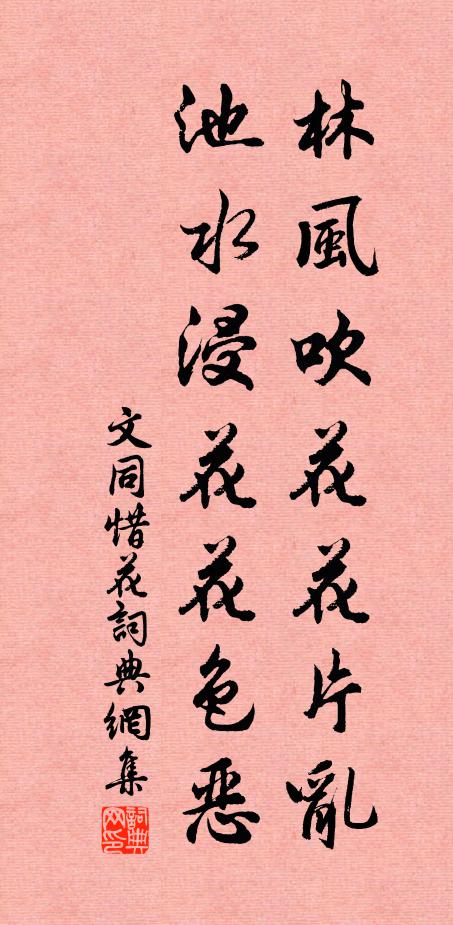 林風吹花花片亂
池水浸花花色惡
文同惜花詞典網集
詞典网印